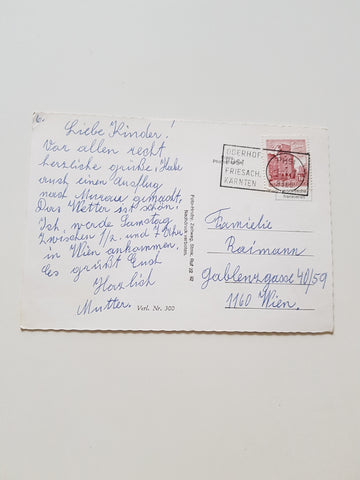 Liebe Kinder!
Vor allen recht
herzliche grüße. Habe
auch einen Ausflug
nach Murau gemacht.
Das Wetter ist schön.
Ich werde Samstag
zwischen 1/2 und 7 Uhr
in Wien ankommen.
Es grüßt Euch
Herzlich
Mutter.
Verl. Nr. 300
Nachdruck verboten.
OBERHOF,
POST
FRIESACH,
KÄRNTEN
Familie
Raimann
Gablenzgasse 40/59
1160 Wien.